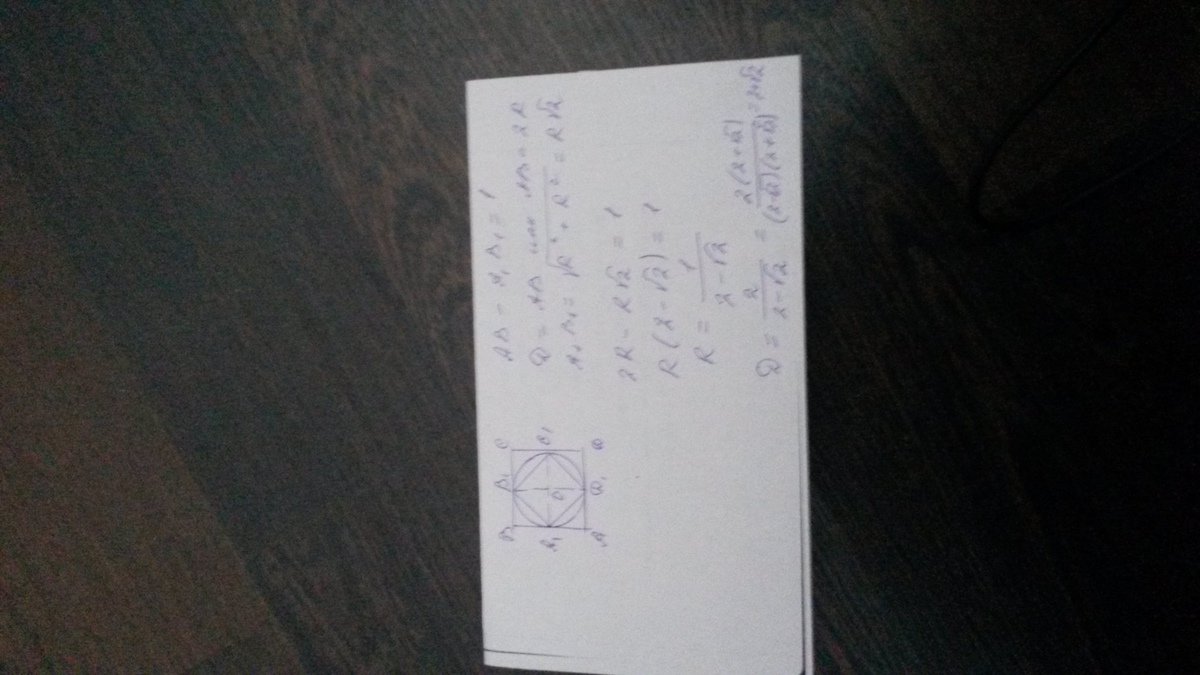 B B₁ C
A₁ O C₁
A D₁ D
AB - A₁B₁ = 1
D = AB или AB = 2R
A₁B₁ = √R² + R² = R√2
2R - R√2 = 1
R(2 - √2) = 1
R = 1/(2 - √2)
D = 2/(2 - √2) = 2(2+√2)/((2-√2)(2+√2)) = 2+√2